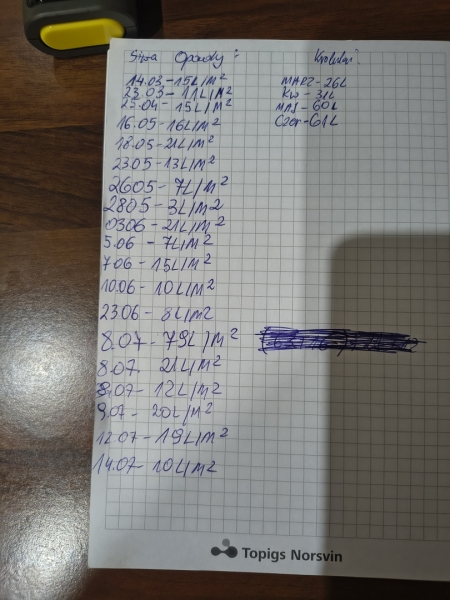 Opady:
14.03-15L/M²
23.03-11L/M²
25.04-15L/M²
16.05-16L/M²
18.05-2L/M²
23.05-13L/M²
26.05-7L/M²
28.05-3L/M2
03.06-21L/M²
5.06-7L/M²
7.06-15L/M²
10.06-10L/M²
23.06-8L/M2
8.07-79L/M²
8.07. 21L/M²
8.07-12L/M²
9.07-20L/M²
12.07-19L/M²
14.07-10L/M2
MARZ-26L
Kw-31L
MAJ-60L
Czer-61L
Topigs Norsvin